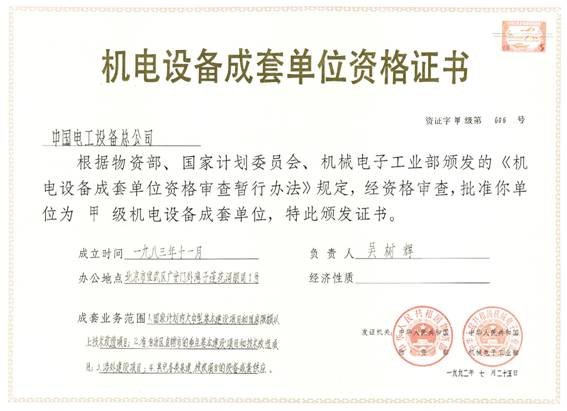 机电设备成套单位资格证书
资证字 甲 级第 606 号
中国电工设备总公司
根据物资部、国家计划委员会、机械电子工业部颁发的《机
电设备成套单位资格审查暂行办法》规定，经资格审查，批准你单
位为 甲 级机电设备成套单位，特此颁发证书。
成立时间 一九八三年十一月
负责人 吴树辉
办公地点 北京市宣武区广安门外湾子莲花河胡同1号
经济性质
成套业务范围 1.国家计划内大中型基本建设项目和限额以
上技术改造项目；2.省市自治区
基本建设项目和技术改造项
目；3.涉外建设项目；4.其它各类基建、技改项目的设备成套供应。
发证机关： 中华人民共和国
物资部
中华人民共和国
机械电子工业部
一九九二年 七 月 二十五日